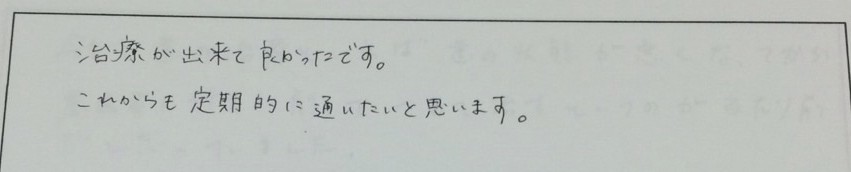 治療が出来て良かったです。
これからも定期的に通いたいと思います。